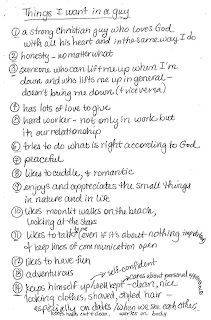 Things I want in a guy
① a strong Christian guy who loves God
with all his heart and in the same way I do
② honesty - no matter what
③ someone who can lift me up when I'm
down and who lifts me up in general -
doesn't bring me down (+ vice versa)
④ has lots of love to give
⑤ hard worker - not only in works but
in our relationship
⑥ tries to do what is right according to God
⑦ peaceful
⑧ likes to cuddle, + romantic
⑨ enjoys and appreciates the small things
in nature and in life
⑩ likes moonlit walks on the beach,
looking at the stars
⑪ likes to talk (even if it's about nothing
+ keep lines of communication open
⑫ likes to have fun
⑬ adventurous
self-confident
cares about personal
⑭ keeps himself up/well kept - clean, nice
looking clothes, shaved, styled hair -
especially on dates/when we see each other
works on body